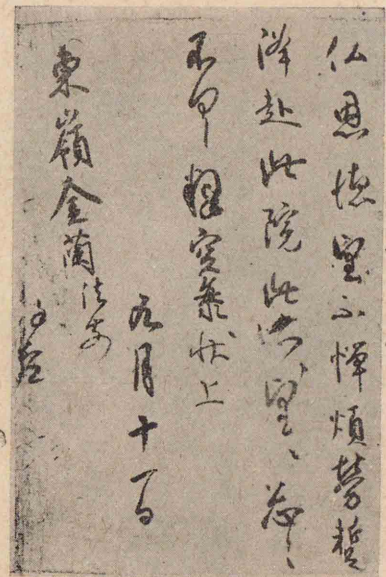 仏恩徳望不憚煩勞蹔
降赴此院此所望々忩々
不具釋空海状上
九月十一日
東嶺金蘭法前
謹空